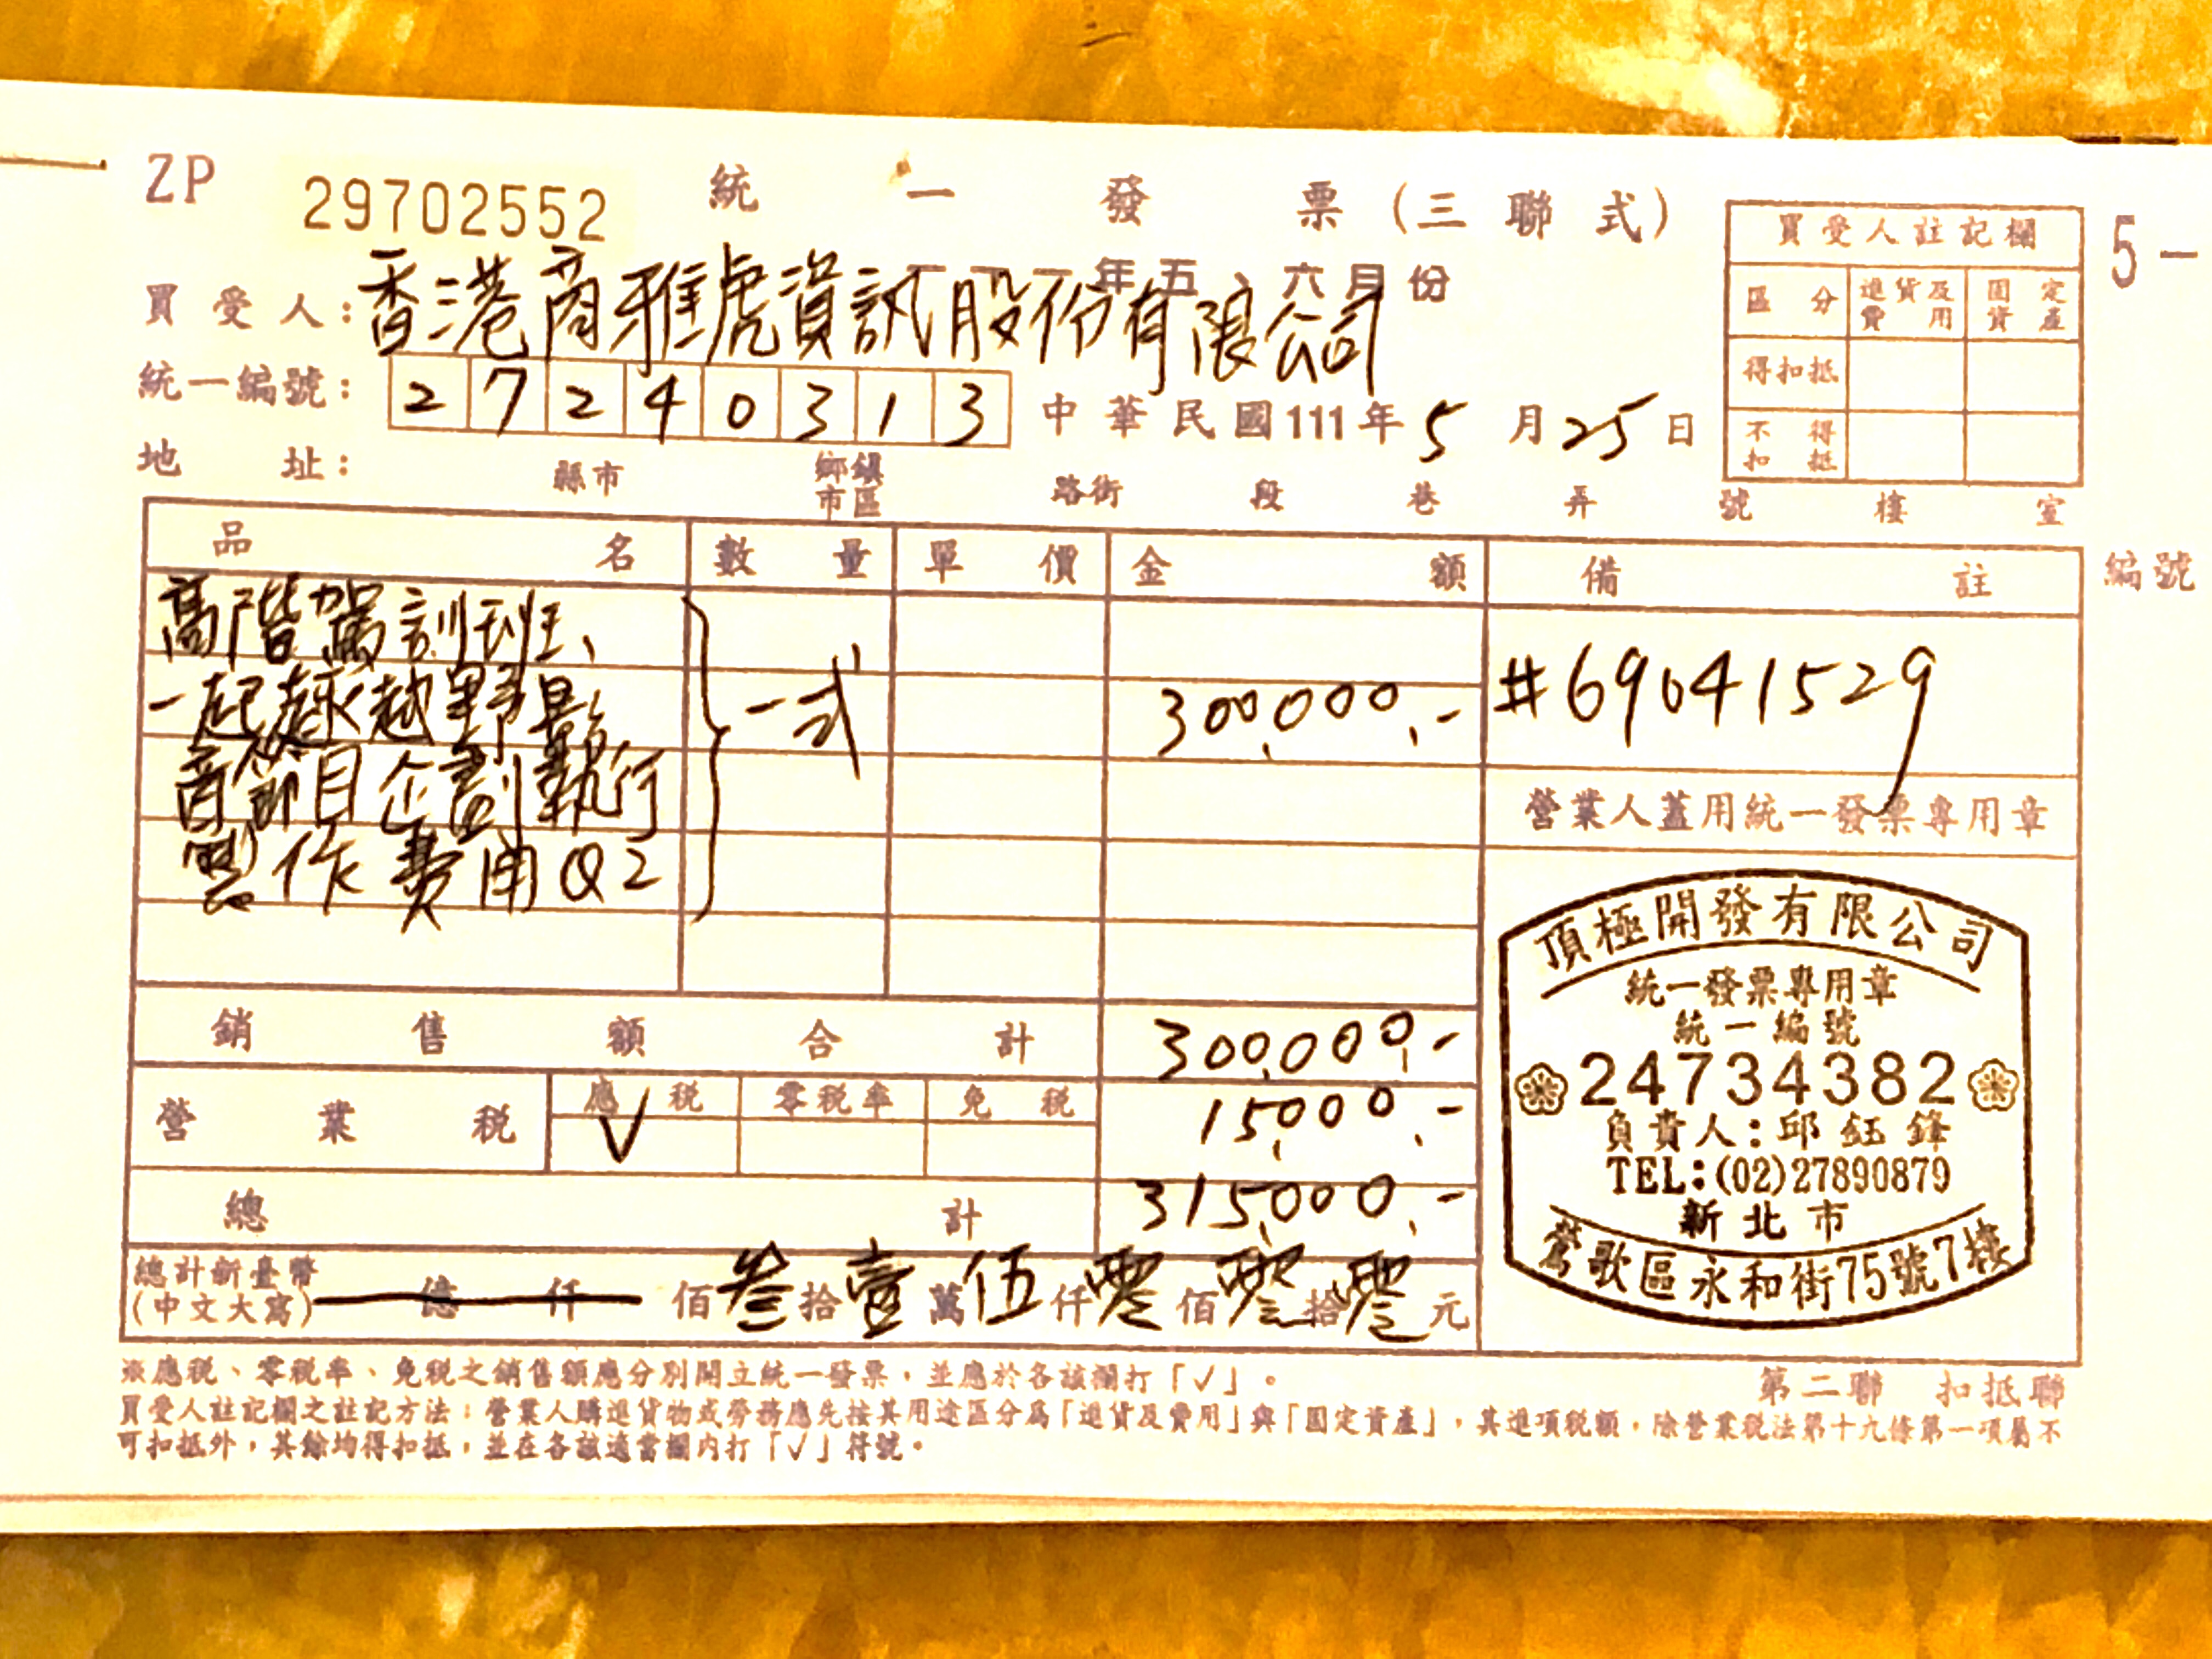 ZP 29702552 統一發票(三聯式)
一一一年五、六月份
買受人:香港商雅虎資訊股份有限公司
統一編號:27240313 中華民國111年5月25日
地址: 縣市 鄉鎮市區 路街 段 巷 弄 號 樓 室
買受人註記欄
區分 進貨及費用 固定資產
得扣抵
不得扣抵
5-
編號
品名 數量 單價 金額 備註
高階駕訓班、
一起趣越野影
音節目企劃執行
製作費用Q2
一式 300,000.- #69641529
營業人蓋用統一發票專用章
銷售額合計 300,000.-
營業稅 應稅 零稅率 免稅 15,000.-
V
總計 315,000.-
總計新臺幣
(中文大寫) 億 仟 佰叁拾壹萬伍仟零佰零拾零元
頂極開發有限公司
統一發票專用章
統一編號
24734382
負責人:邱鈺鋒
TEL:(02)27890879
新北市
鶯歌區永和街75號7樓
※應稅、零稅率、免稅之銷售額應分別開立統一發票,並應於各該欄打「✓」。
第二聯 扣抵聯
買受人註記欄之註記方法:營業人購進貨物或勞務應先按其用途區分為「進貨及費用」與「固定資產」,其進項稅額,除營業稅法第十九條第一項屬不
可扣抵外,其餘均得扣抵,並在各該適當欄內打「✓」符號。